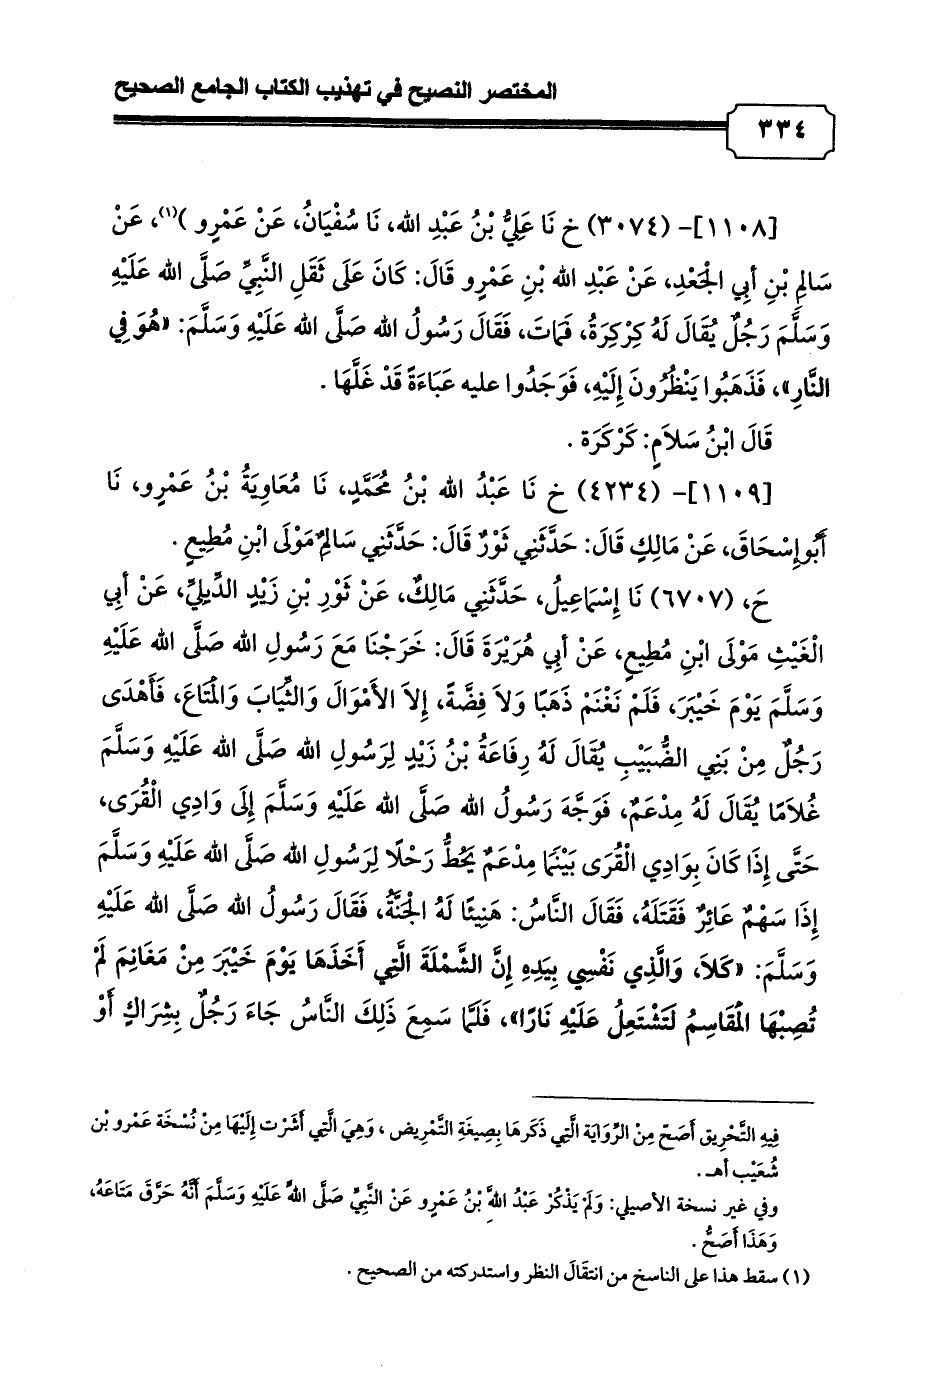 المختصر النصيح في تهذيب الكتاب الجامع الصحيح
٣٣٤
[١١٠٨]- (٣٠٧٤) خ نَا عَلِيُّ بْنُ عَبْدِ الله، نَا سُفْيَانُ، عَنْ عَمْرِو )(١)، عَنْ
سَالِمِ بْنِ أَبِي الْجَعْدِ، عَنْ عَبْدِ الله بْنِ عَمْرٍو قَالَ: كَانَ عَلَى ثَقَلِ النَّبِيِّ صَلَّى الله عَلَيْهِ
وَسَلَّمَ رَجُلٌ يُقَالَ لَهُ كِرْكِرَةُ، فَمَاتَ، فَقَالَ رَسُولُ الله صَلَّى الله عَلَيْهِ وَسَلَّمَ: «هُوَ فِي
النَّارِ»، فَذَهَبُوا يَنْظُرُونَ إِلَيْهِ، فَوَجَدُوا عليه عَبَاءَةً قَدْ غَلَّهَا .
قَالَ ابْنُ سَلاَمٍ: كَرْكَرَة .
[١١٠٩]- (٤٢٣٤) خ نَا عَبْدُ الله بْنُ مُحَمَّدٍ، نَا مُعَاوِيَةُ بْنُ عَمْرٍو، نَا
أَبُوإِسْحَاقَ، عَنْ مَالِكٍ قَالَ: حَدَّثَنِي ثَوْرٌ قَالَ: حَدَّثَنِي سَالِمٌ مَوْلَى ابْنِ مُطِيعٍ .
حَ، (٦٧٠٧) نَا إِسْمَاعِيلُ، حَدَّثَنِي مَالِكٌ، عَنْ ثَوْرِ بْنِ زَيْدٍ الدِّيلِيِّ، عَنْ أَبِي
الْغَيْثِ مَوْلَى ابْنِ مُطِيعٍ، عَنْ أَبِي هُرَيْرَةَ قَالَ: خَرَجْنَا مَعَ رَسُولِ الله صَلَّى الله عَلَيْهِ
وَسَلَّمَ يَوْمَ خَيْبَرَ، فَلَمْ نَغْنَمْ ذَهَبًا وَلاَ فِضَّةً، إِلاَ الأَمْوَالَ وَالثِّيَابَ وَالْمَتَاعَ، فَأَهْدَى
رَجُلٌ مِنْ بَنِي الضُّبَيْبِ يُقَالَ لَهُ رِفَاعَةُ بْنُ زَيْدٍ لِرَسُولِ الله صَلَّى الله عَلَيْهِ وَسَلَّمَ
غُلاَمًا يُقَالَ لَهُ مِدْعَمٌ، فَوَجَّهَ رَسُولُ الله صَلَّى الله عَلَيْهِ وَسَلَّمَ إِلَى وَادِي الْقُرَى،
حَتَّى إِذَا كَانَ بِوَادِي الْقُرَى بَيْنَمَا مِدْعَمٌ يَحُطُّ رَحْلًا لِرَسُولِ الله صَلَّى الله عَلَيْهِ وَسَلَّمَ
إِذَا سَهْمٌ عَائِرٌ فَقَتَلَهُ، فَقَالَ النَّاسُ: هَنِيئًا لَهُ الْجَنَّةُ، فَقَالَ رَسُولُ الله صَلَّى الله عَلَيْهِ
وَسَلَّمَ: «كَلاَ، وَالَّذِي نَفْسِي بِيَدِهِ إِنَّ الشَّمْلَةَ الَّتِي أَخَذَهَا يَوْمَ خَيْبَرَ مِنْ مَغَانِمَ لَمْ
تُصِبْهَا الْمَقَاسِمُ لَتَشْتَعِلُ عَلَيْهِ نَارًا»، فَلَمَّا سَمِعَ ذَلِكَ النَّاسُ جَاءَ رَجُلٌ بِشِرَاكٍ أَوْ
فِيهِ التَّحْرِيق أَصَحّ مِنْ الرِّوَايَة الَّتِي ذَكَرهَا بِصِيغَةِ التَّمْرِيض ، وَهِيَ الَّتِي أَشَرْت إِلَيْهَا مِنْ نُسْخَة عَمْرو بْن
شُعَيْب أهـ .
وفي غير نسخة الأصيلي: وَلَمْ يَذْكُرْ عَبْدُ اللهَِّ بْنُ عَمْرٍو عَنْ النَّبِيِّ صَلَّى اللهَُّ عَلَيْهِ وَسَلَّمَ أَنَّهُ حَرَّقَ مَتَاعَهُ،
وَهَذَا أَصَحُّ .
(١) سقط هذا على الناسخ من انتقَالَ النظر واستدركته من الصحيح .